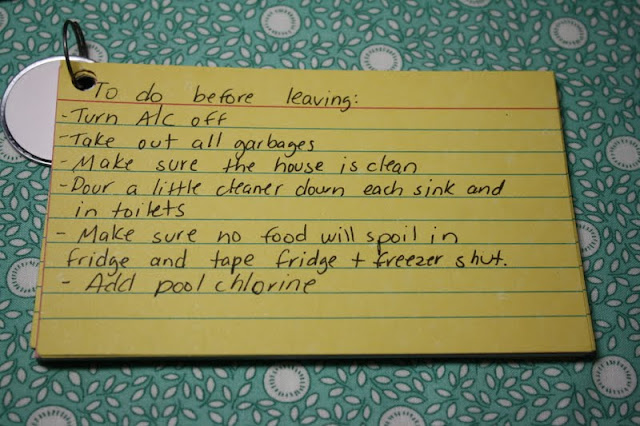 To do before leaving:
- Turn A/C off
- Take out all garbages
- Make sure the house is clean
- Pour a little cleaner down each sink and
in toilets
- Make sure no food will spoil in
fridge and tape fridge + freezer shut.
- Add pool chlorine